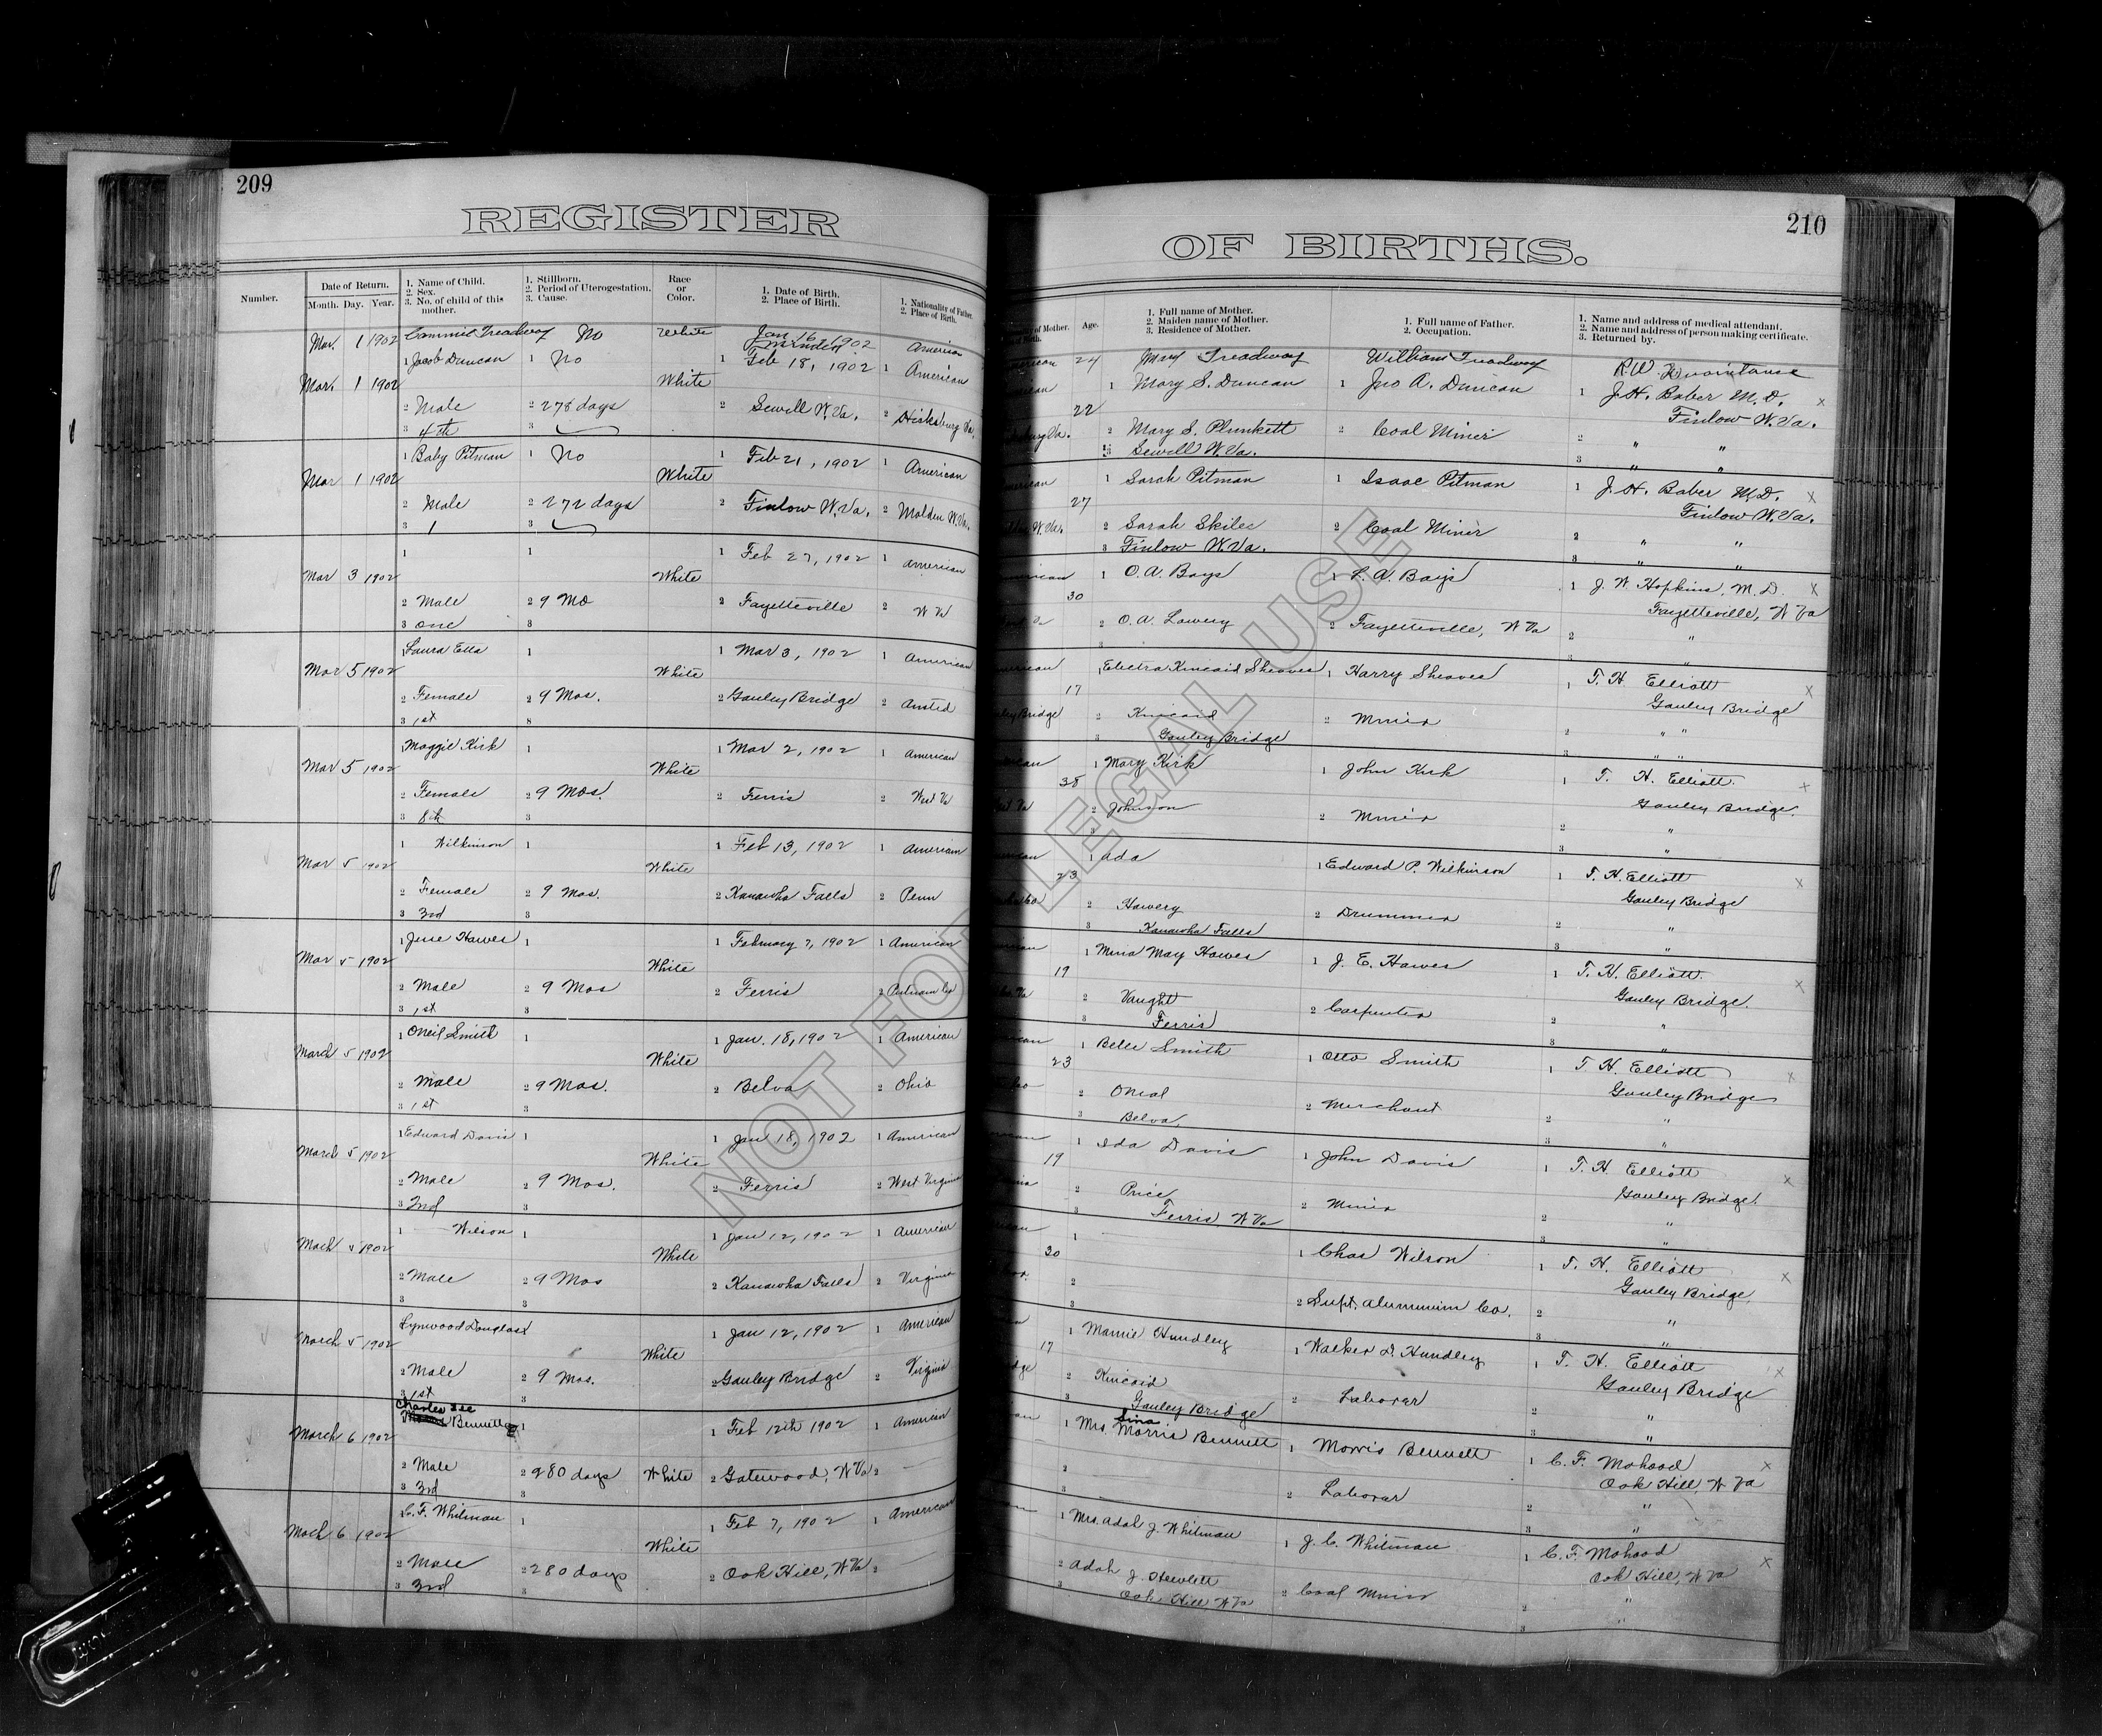 209
REGISTER
Number.
Date of Return.
Month. Day. Year.
1. Name of Child.
2. Sex.
3. No. of child of this mother.
1. Stillborn.
2. Period of Uterogestation.
3. Cause.
Race or Color.
1. Date of Birth.
2. Place of Birth.
1. Nationality of Father.
2. Place of Birth.
Mar 1 1902 Treadway No White Jan 16 1902 American
Minden
1 Jacob Duncan 1 No 1 Feb 18, 1902 1 American
Mar 1 1902 White
2 Male 2 278 days 2 Sewell W. Va. 2 Va.
3 4th 3
1 Baby Pitman 1 No 1 Feb 21, 1902 1 American
Mar 1 1902 White
2 Male 2 272 days 2 Finlow W. Va. 2 Malden W. Va.
3 1 3
1 1 1 Feb 27, 1902 1 American
Mar 3 1902 White
2 Male 2 9 Mo 2 Fayetteville 2 W Va
3 One 3
1 Laura Etta 1 1 Mar 3, 1902 1 American
Mar 5 1902 White
2 Female 2 9 Mos. 2 Gauley Bridge 2 Ansted
3 1st 3
1 Maggie Kirk 1 1 Mar 2, 1902 1 American
Mar 5 1902 White
2 Female 2 9 Mos. 2 Ferris 2 West Va
3 8th 3
1 Wilkinson 1 1 Feb 13, 1902 1 American
Mar 5 1902 White
2 Female 2 9 Mos. 2 Kanawha Falls 2 Penn
3 3rd 3
1 Jesse Hawes 1 1 February 7, 1902 1 American
Mar 5 1902 White
2 Male 2 9 Mos 2 Ferris 2 Putnam Co
3 1st 3
1 Oneil Smith 1 1 Jan. 18, 1902 1 American
March 5 1902 White
2 Male 2 9 Mos. 2 Belva 2 Ohio
3 1st 3
1 Edward Davis 1 1 Jan 18, 1902 1 American
March 5 1902 White
2 Male 2 9 Mos. 2 Ferris 2 West Virginia
3 2nd 3
1 Wilson 1 1 Jan 12, 1902 1 American
Mach 5 1902 White
2 Male 2 9 Mos 2 Kanawha Falls 2 Virginia
3 3
Lynwood Douglass 1 Jan 12, 1902 1 American
March 5 1902 White
2 Male 2 9 Mos. 2 Gauley Bridge 2 Virginia
3 1st 3
Charles Lee
Bennett 1 1 Feb 12th 1902 1 American
March 6 1902
2 Male 2 280 days White 2 Gatewood, W Va 2
3 3rd 3
1 C. F. Whitman 1 1 Feb 7, 1902 1 American
Mach 6 1902 White
2 Male 2 280 days 2 Oak Hill, W Va 2
3 3rd 3
210
OF BIRTHS.
of Mother.
Age.
1. Full name of Mother.
2. Maiden name of Mother.
3. Residence of Mother.
1. Full name of Father.
2. Occupation.
1. Name and address of medical attendant.
2. Name and address of person making certificate.
3. Returned by.
24 Mary Treadway William Treadway R. W.
1 Mary S. Duncan 1 Jno A. Duncan 1 J. H. Baber M. D. x
22 Finlow W. Va.
2 Mary S. Plunkett 2 Coal Miner 2 " "
3 Sewell W. Va. 3 " "
1 Sarah Pitman 1 Isaac Pitman 1 J. H. Baber M. D. x
27 Finlow W. Va.
2 Sarah Skiles 2 Coal Miner 2 " "
3 Finlow W. Va. 3 " "
1 O. A. Bays 1 A. Bays 1 J. W. Hopkins, M. D. x
30 Fayetteville, W Va
2 O. A. Lowery 2 Fayetteville, W Va 2 "
3 3 "
1 Electra Kincaid Sheaves 1 Harry Sheaves 1 T. H. Elliott x
17 Gauley Bridge
2 Kincaid 2 Miner 2 " "
3 Gauley Bridge 3 " "
1 Mary Kirk 1 John Kirk 1 T. H. Elliott. x
38 Gauley Bridge.
2 Johnson 2 Miner 2 "
3 3 "
1 Ada 1 Edward P. Wilkinson 1 T. H. Elliott x
23 Gauley Bridge
2 Howery 2 Drummer 2 "
3 Kanawha Falls 3 "
1 Mina May Hawes 1 J. E. Hawes 1 T. H. Elliott. x
19 Gauley Bridge.
2 Vaught 2 Carpenter 2 "
3 Ferris 3 "
1 Belle Smith 1 Otto Smith 1 T. H. Elliott x
23 Gauley Bridge
2 Oneal 2 Merchant 2 "
3 Belva 3 "
1 Ida Davis 1 John Davis 1 T. H. Elliott x
19 Gauley Bridge.
2 Price 2 Miner 2 "
3 Ferris W Va 3 "
1 1 Chas Wilson 1 T. H. Elliott x
30 Gauley Bridge.
2 2 Supt. Aluminium Co. 2 "
3 3 "
1 Mamie Hundley 1 Walker D. Hundley 1 T. H. Elliott x
17 Gauley Bridge
2 Kincaid 2 Laborer 2 "
3 Gauley Bridge 3 "
Sina
1 Mrs. Morris Bennett 1 Morris Bennett 1 C. F. Mahood x
Oak Hill, W Va
2 2 Laborer 2 "
3 3 "
1 Mrs. Adah J. Whitman 1 J. C. Whitman 1 C. F. Mahood x
Oak Hill, W Va
2 Adah J. Hewlett 2 Coal Miner 2 "
3 Oak Hill W Va 3 "
NOT FOR LEGAL USE